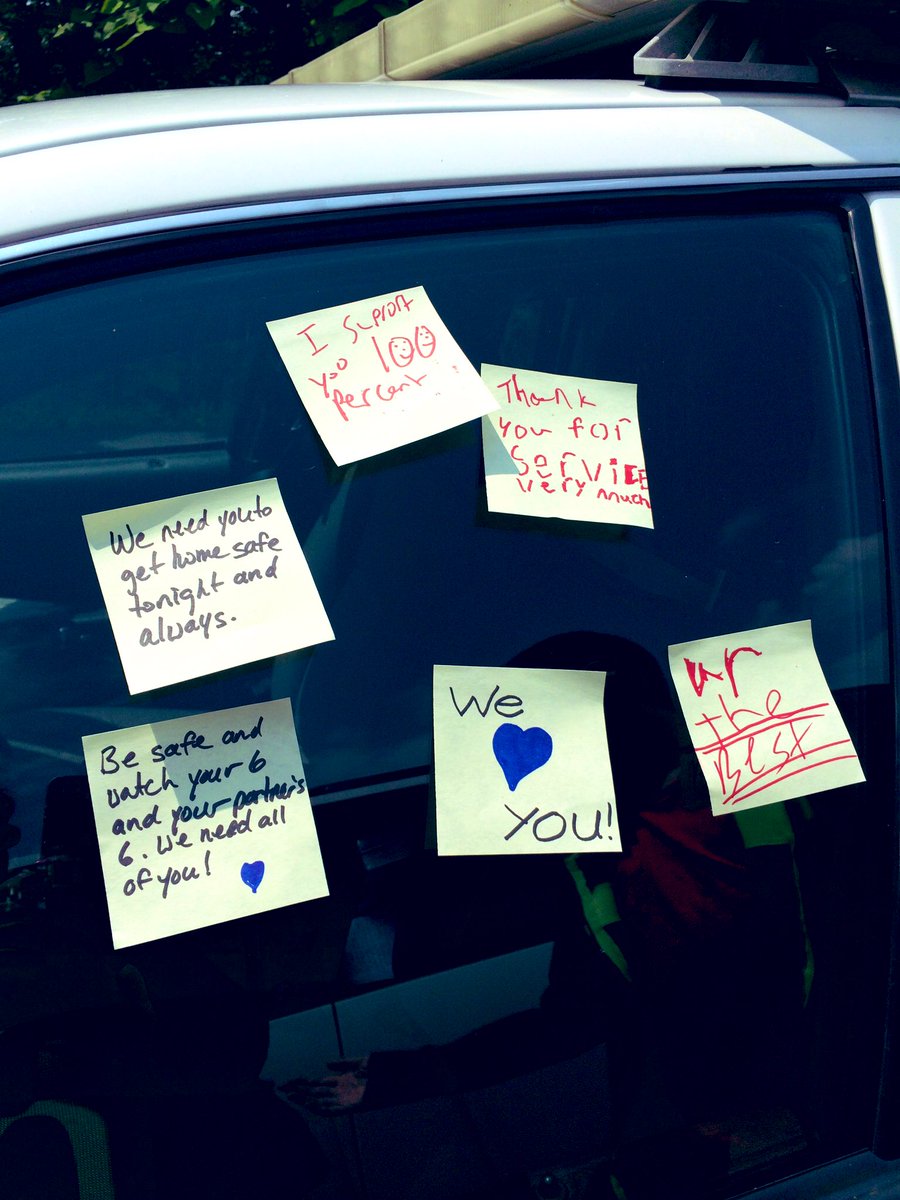 I Suport
you 100
percent
Thank
you for
Service
very much
We need you to
get home safe
tonight and
always.
Be safe and
watch your 6
and your partner's
6. We need all
of you!
We
You!
ur
the
BEST